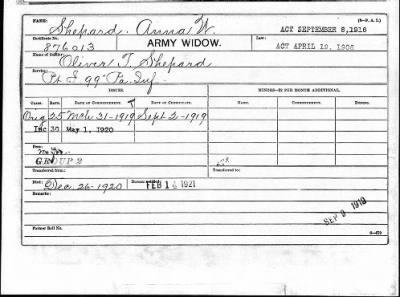 (3—P. A. I.)
NAME: Shepard. Anna W. ACT SEPTEMBER 8, 1916
Certificate No. 876013 ARMY WIDOW. Law: ACT APRIL 19, 1908
Name of Soldier: Oliver T. Shepard
Service: Pt I. 99" Pa. Inf.
ISSUES. MINORS—$2 PER MONTH ADDITIONAL.
CLASS. RATE. DATE OF COMMENCEMENT. DATE OF CERTIFICATE. NAME. COMMENCED.
Orig 25 Mch 31-1919 Sept 2-1919
Inc 30 May 1, 1920
GROUP 2
Transferred from: Transferred from:
Died: Dec. 26-1920 FEB 14 1921
Remarks:
SEP 9 1919
Former Roll No.